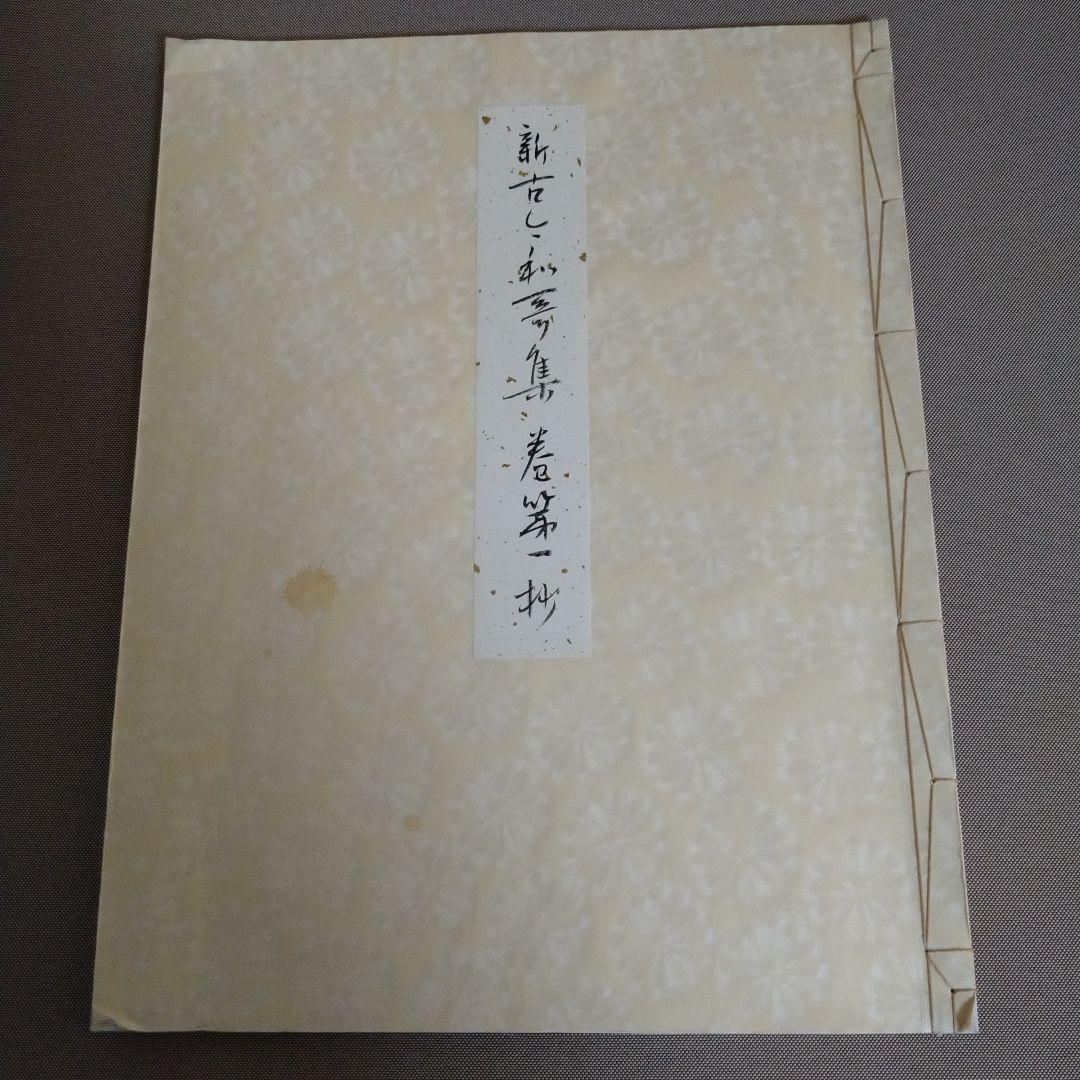 新古今和哥集 巻第一 抄